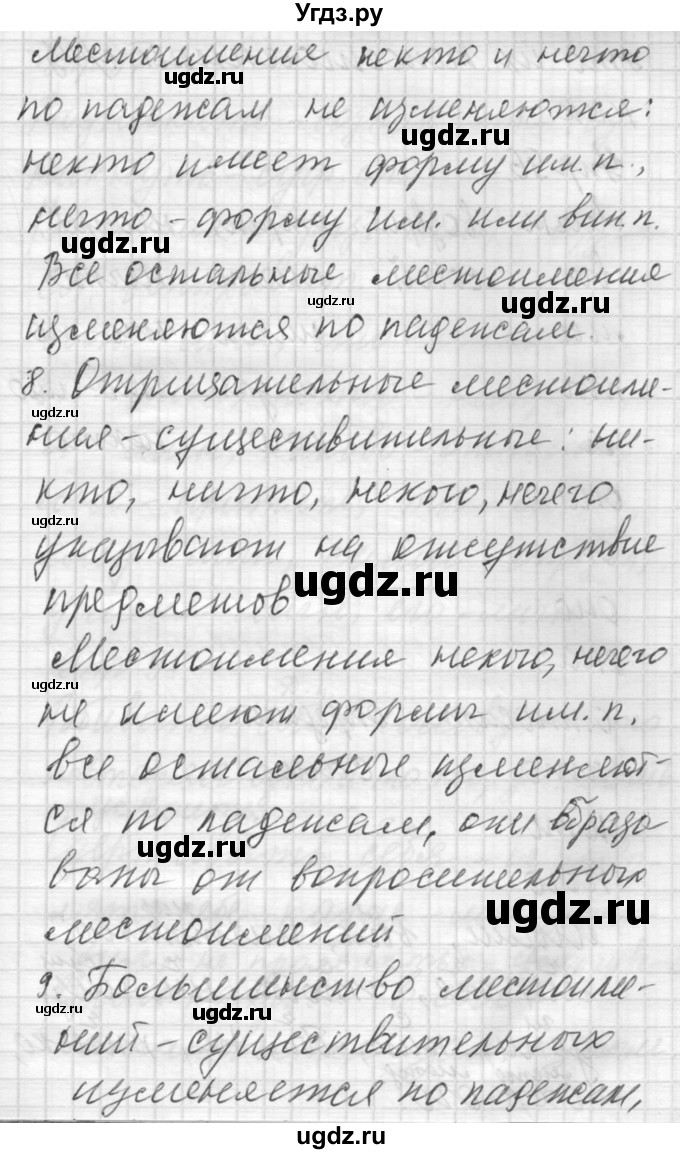 Угдз.ру
Местоимения некто и нечто
по падежам не изменяются:
некто имеет форму им. п.,
нечто - форму им. или вин. п.
Все остальные местоимения
изменяются по падежам.
8. Отрицательные местоиме-
ния - существительные: ни-
кто, ничто, некого, нечего
указывают на отсутствие
предметов
Местоимения некого, нечего
не имеют формы им. п.
все остальные изменяют-
ся по падежам, они образо
ваны от вопросительных
местоимений
9. Большинство местоиме-
ний - существительных
изменяется по падежам,
ugdz.ru